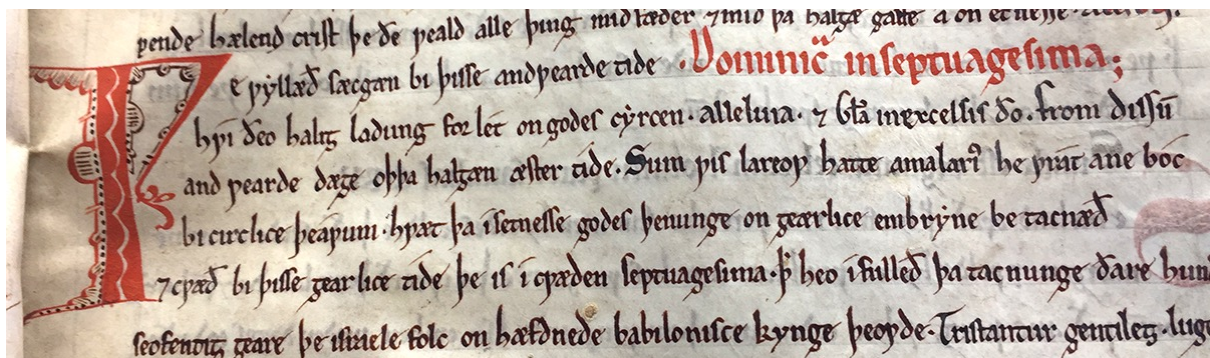 pende hælend crist þe ðe ƿeald alle þing mid fæder ⁊ mid þa halgæ gaste a on ecnesse.
Ƿe ƿyllæð sæcgæn bi þisse andƿearde tide · Dominicͣ in septuagesima;
hƿi ðeo halig ladung forlet on godes cẏrcen · alleluia · ⁊ gl̄a in excelsis d̄o. from dissū
and ƿearde dæge oþþa halgæn æster tide. Sum ƿis lareoƿ hatte amalari᾽ he ƿrat ane boc
bi circlice þeaƿum · hƿæt þa isetnesse godes þenunge on geærlice embrẏne be tacnæð
⁊ cƿæð bi þisse gearlice tide þe is icƿæden septuagesima · ꝥ heo ifulleð þa tacnunge ðare hun
seofentig geare þe israele folc on hæftnede babilonisce kynge þeoƿde · Tristantur gentiles · luge